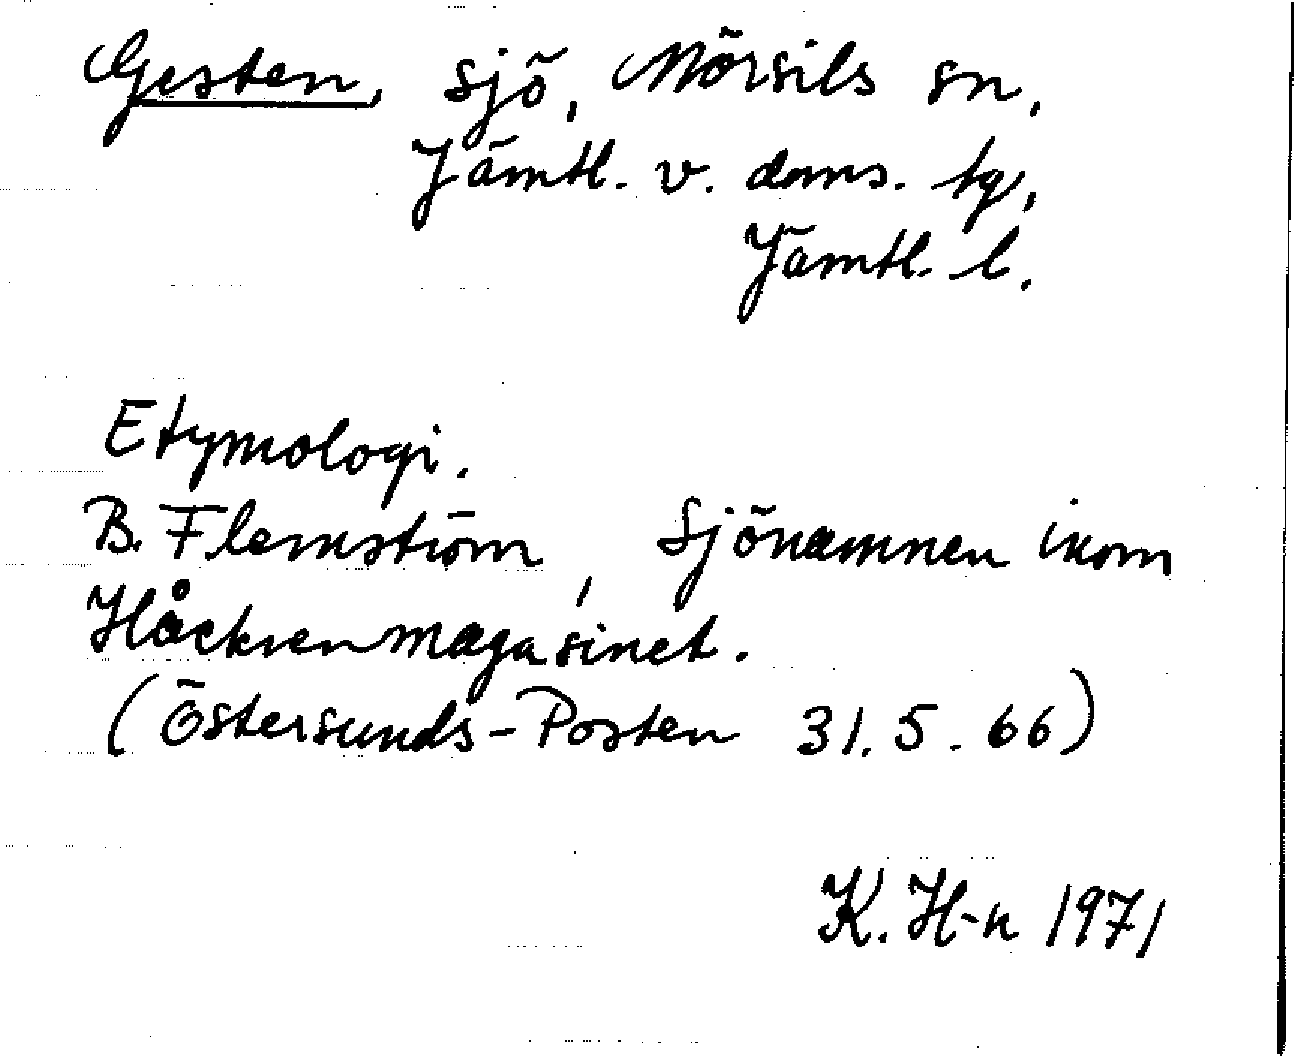 Gesten, sjö, Mörsils sn,
Jämtl. v. doms. tg,
Jämtl. l.
Etymologi.
B. Flemström, Sjönamnen inom
Håckrenmagasinet.
(Östersunds-Posten 31.5.66)
K. H-n 1971